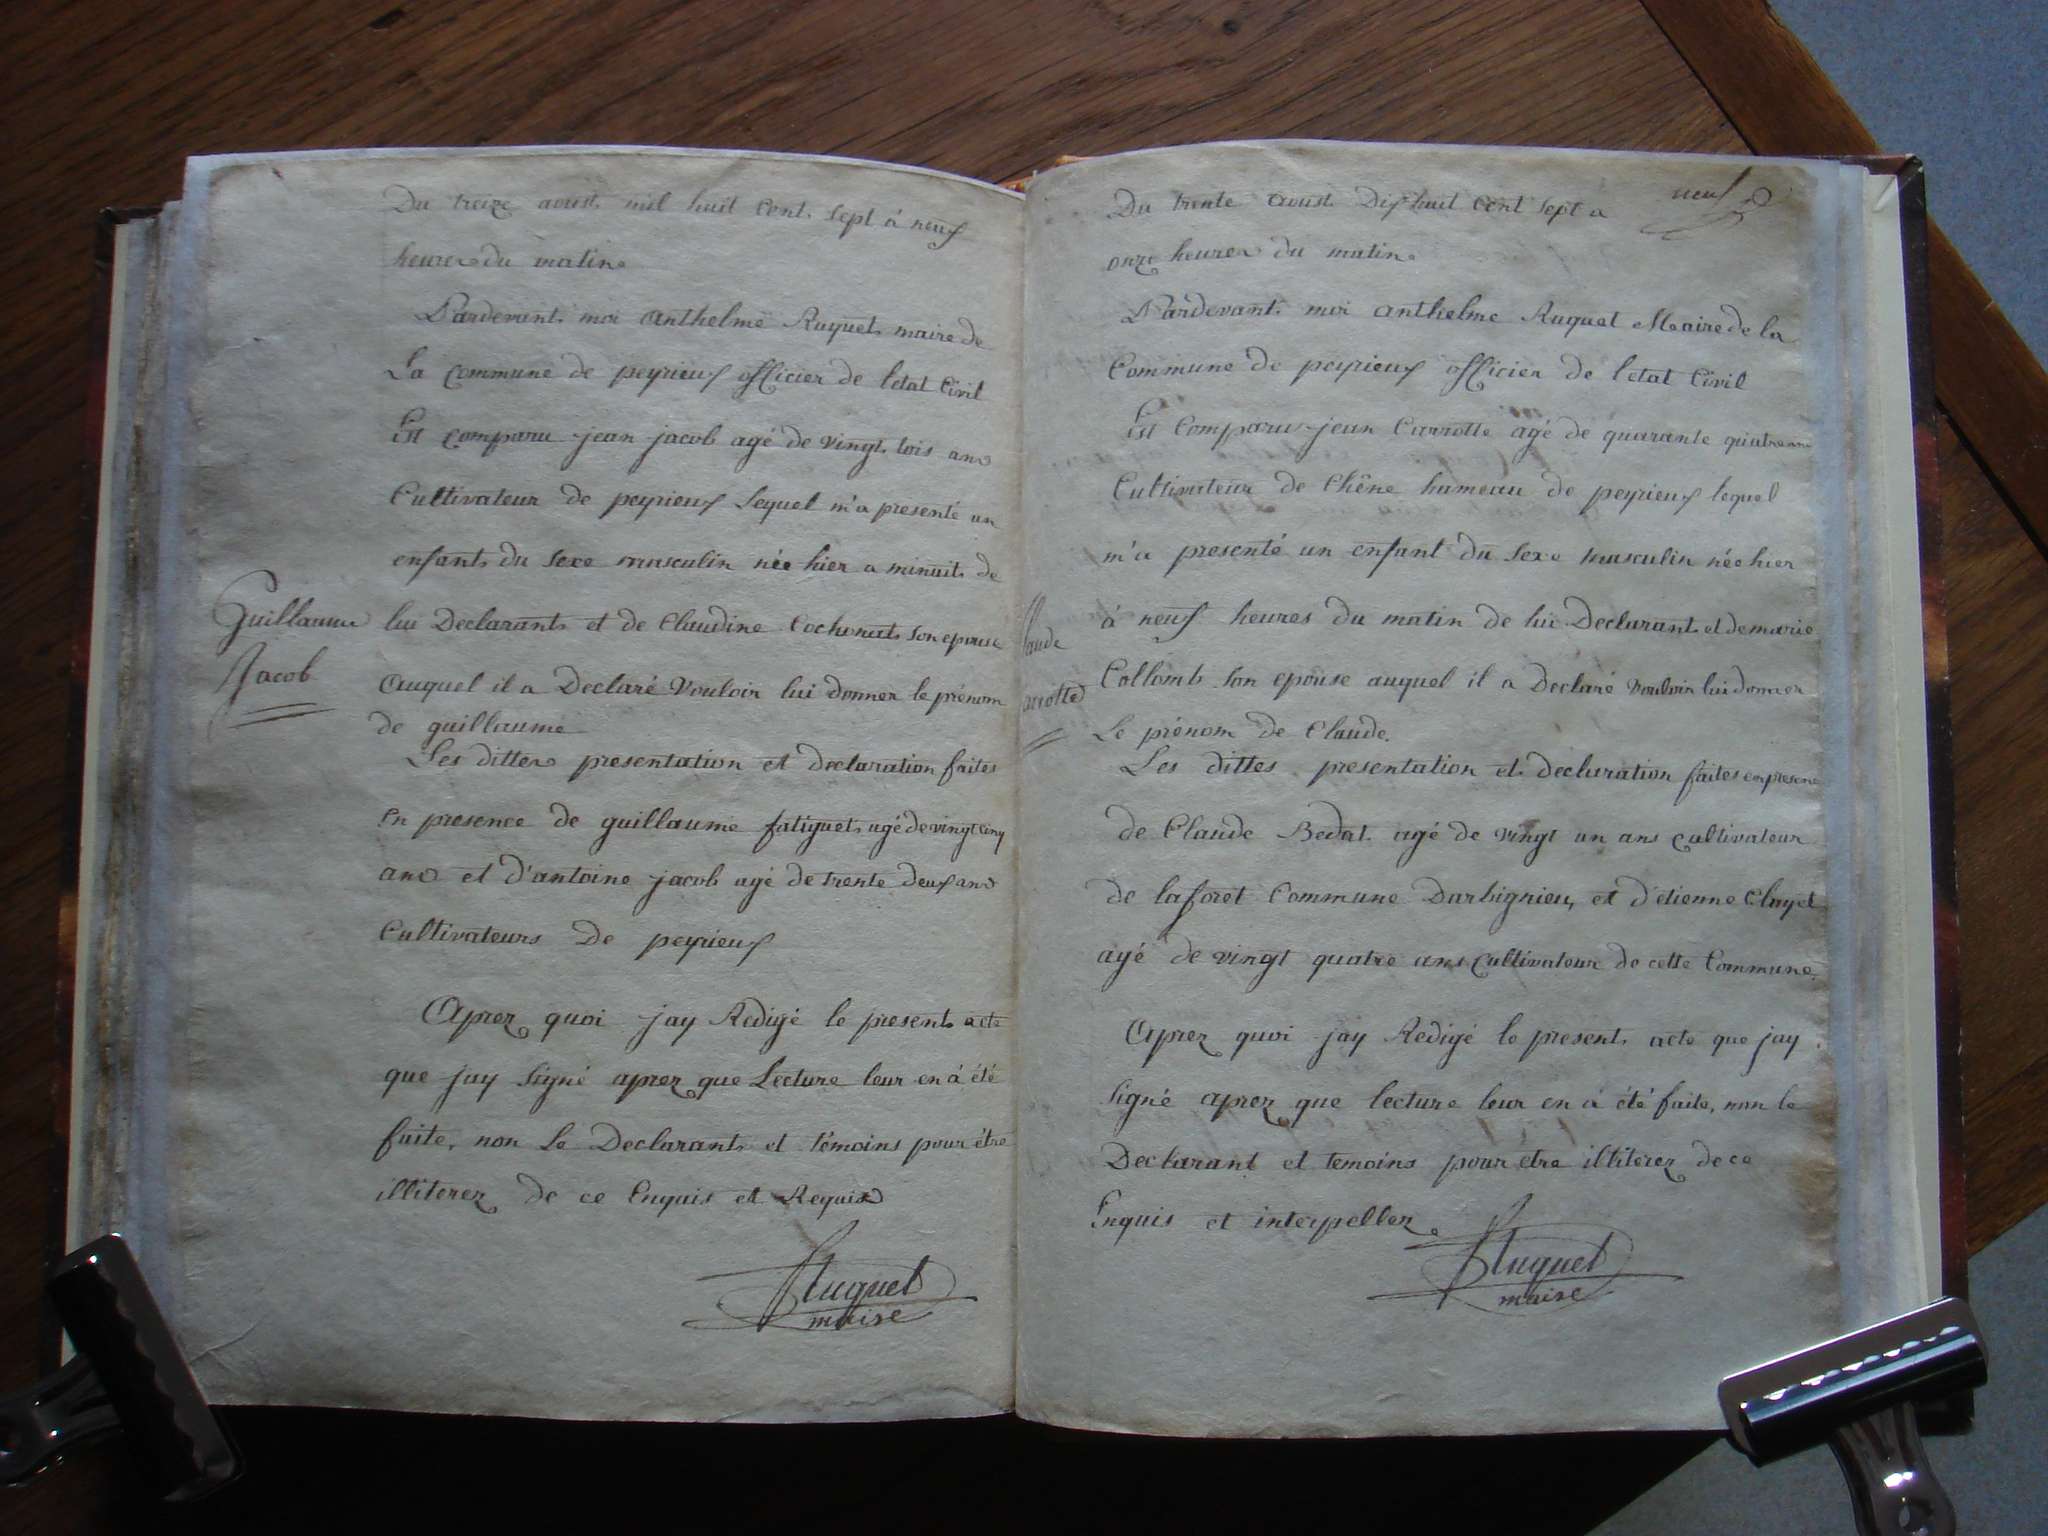 Du treize aoust mil huit Cent sept á neuf
heures du matin
Pardevant moi anthelme Ruquet maire de
La Commune de peyrieux officier de letat Civil
Est comparu jean jacob agé de vingt tois ans
Cultivateur de peyrieux Lequel m'a presenté un
enfant du sexe masculin née hier a minuit de
Guillaume
Jacob
lui Declarant et de Claudine Cochonat son epouse
auquel il a Declaré Vouloir lui donner le prénom
de guillaume
Les dittes presentation et declaration faites
en presence de guillaume fatiguet agé de vingt cinq
ans et d'antoine jacob agé de trente deux ans
Cultivateurs de peyrieux
Aprez quoi jay Redigé le present acte
que jay signé aprez que Lecture leur en á été
faite, non le Declarant et témoins pour être
illiterez de ce Enquis et Requis
Ruquet
maire
neuf
Du trente aoust Dix huit Cent sept a
onze heures du matin
Pardevant moi anthelme Ruquet Maire de la
Commune de peyrieux officier de letat Civil
Est Comparus jean Carrotte agé de quarante quatre ans
Cultivateur de Chêne hameau de peyrieux lequel
m'a presenté un enfant du sexe masculin née hier
laude
arrotte
á neuf heures du matin de lui Declarant et de marie
Collomb son epouse auquel il a Declaré vouloir lui donner
Le prénom de Claude.
Les dittes presentation et declaration faites en presence
de Claude Bedat agé de vingt un ans cultivateur
de laforet Commune Darbignieu, et d'étienne Clayet
agé de vingt quatre ans Cultivateur de cette Commune.
Aprez quoi jay Redigé le present acte que jay
signé aprez que lecture leur en á été faite, non le
Declarant et temoins pour etre illiterez de ce
Enquis et interpellez
Ruquet
maire